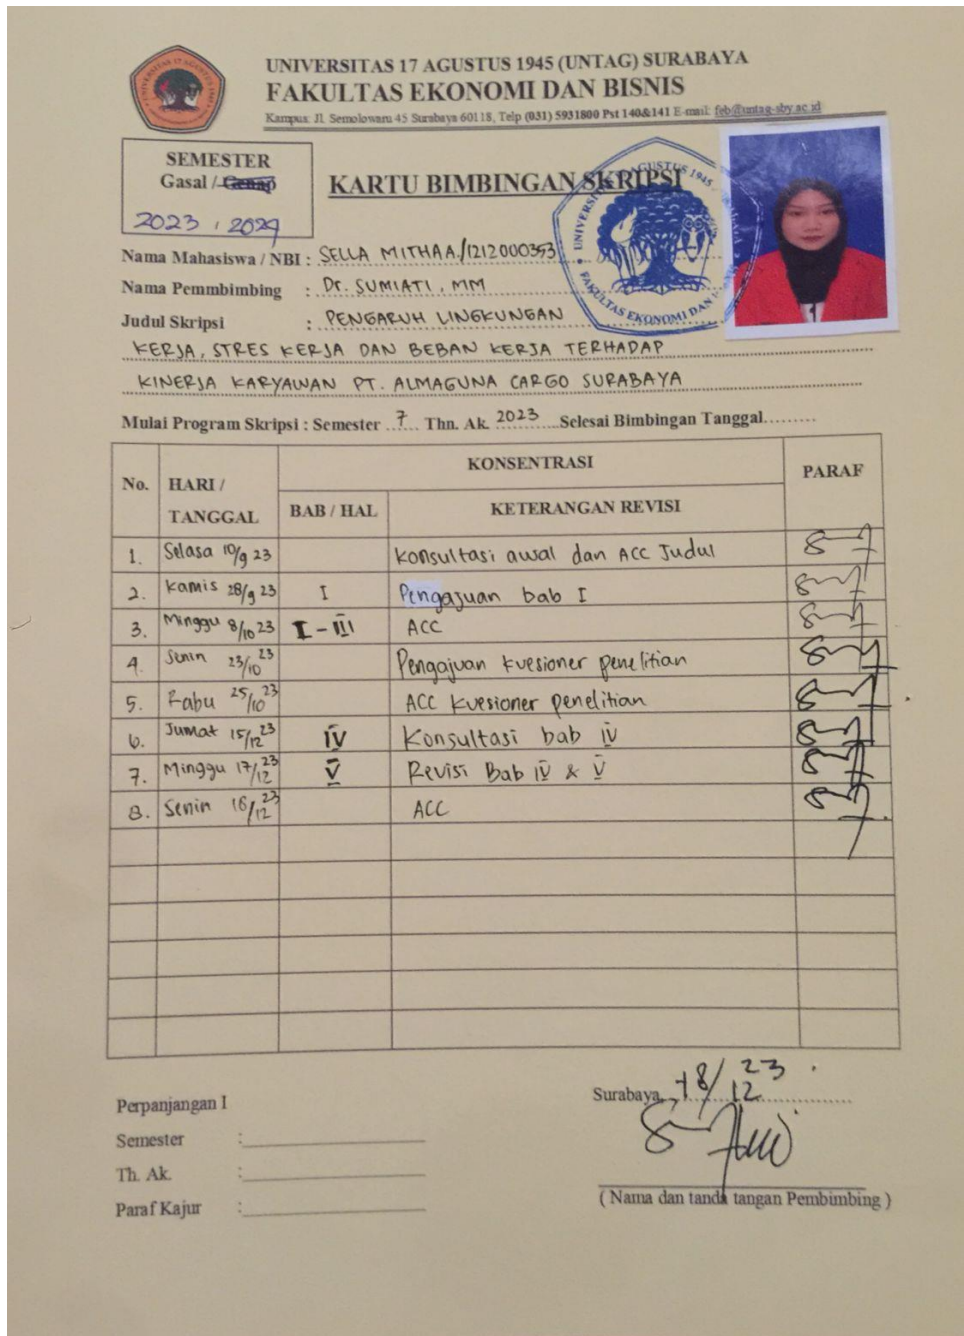 UNIVERSITAS 17 AGUSTUS 1945 (UNTAG) SURABAYA
FAKULTAS EKONOMI DAN BISNIS
Kampus: Jl. Semolowaru 45 Surabaya 60118, Telp (031) 5931800 Pst 140&141 E-mail: feb@untag-sby.ac.id
SEMESTER
Gasal / Genap
2023 / 2024
KARTU BIMBINGAN SKRIPSI
Nama Mahasiswa / NBI : SELLA MITHA A. / 1212000353
Nama Pemmbimbing : Dr. SUMIATI, MM
Judul Skripsi : PENGARUH LINGKUNGAN
KERJA, STRES KERJA DAN BEBAN KERJA TERHADAP
KINERJA KARYAWAN PT. ALMAGUNA CARGO SURABAYA
Mulai Program Skripsi : Semester 7 Thn. Ak. 2023 Selesai Bimbingan Tanggal
No. HARI / TANGGAL KONSENTRASI PARAF
BAB / HAL KETERANGAN REVISI
1. Selasa 10/9 23 Konsultasi awal dan ACC Judul
2. Kamis 28/9 23 I Pengajuan bab I
3. Minggu 8/10 23 I - III ACC
4. Senin 23/10 23 Pengajuan kuesioner penelitian
5. Rabu 25/10 23 ACC kuesioner penelitian
6. Jumat 15/12 23 IV Konsultasi bab IV
7. Minggu 17/12 23 V Revisi Bab IV & V
8. Senin 18/12 23 ACC
Surabaya, 18/12 23
Perpanjangan I
Semester :
Th. Ak. :
Paraf Kajur :
( Nama dan tanda tangan Pembimbing )